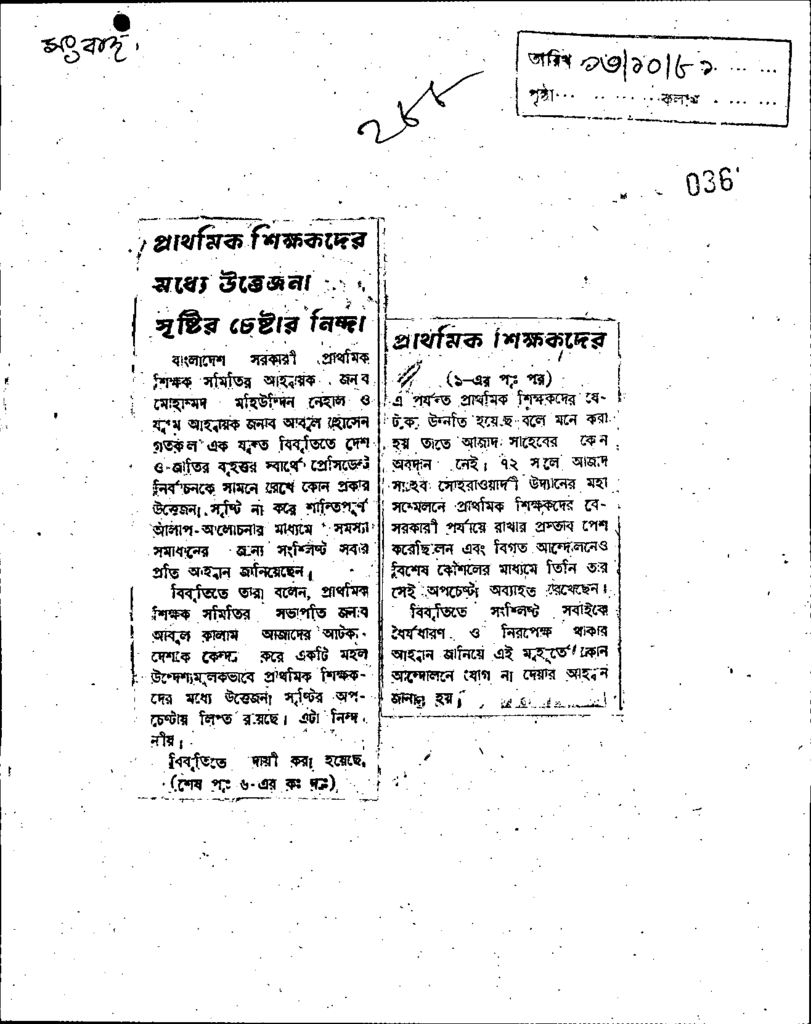 সংবাদ
তারিখ ১৩/১০/৮১ ... ...
পৃষ্ঠা ... ... ... কলাম ... ... ...
২৮৮
036
প্রাথমিক শিক্ষকদের
মধ্যে উত্তেজনা
সৃষ্টির চেষ্টার নিন্দা
বাংলাদেশ সরকারী প্রাথমিক
শিক্ষক সমিতির আহ্বায়ক জনাব
মোহাম্মদ মহিউদ্দিন নেহাল ও
যুগ্ম আহ্বায়ক জনাব আবুল হোসেন
গতকাল এক যুক্ত বিবৃতিতে দেশ
ও-জাতির বৃহত্তর স্বার্থে প্রেসিডেন্ট
নির্বাচনকে সামনে রেখে কোন প্রকার
উত্তেজনা সৃষ্টি না করে শান্তিপূর্ণ
আলাপ-আলোচনার মাধ্যমে সমস্যা
সমাধানের জন্য সংশ্লিষ্ট সবার
প্রতি আহ্বান জানিয়েছেন।
বিবৃতিতে তারা বলেন, প্রাথমিক
শিক্ষক সমিতির সভাপতি জনাব
আবুল কালাম আজাদের আটকা-
দেশকে কেন্দ্র করে একটি মহল
উদ্দেশ্যমূলকভাবে প্রাথমিক শিক্ষক-
দের মধ্যে উত্তেজনা সৃষ্টির অপ-
চেষ্টায় লিপ্ত রয়েছে। এটা নিন্দ-
নীয়।
বিবৃতিতে দাবী করা হয়েছে,
(শেষ পৃঃ ৬-এর কঃ দ্রঃ)
প্রাথমিক শিক্ষকদের
(১-এর পৃঃ পর)
এ পর্যন্ত প্রাথমিক শিক্ষকদের যে-
টুকু উন্নতি হয়েছে বলে মনে করা
হয় তাতে আজাদ সাহেবের কোন
অবদান নেই। ৭২ সালে আজাদ
সাহেব সোহরাওয়ার্দী উদ্যানের মহা
সম্মেলনে প্রাথমিক শিক্ষকদের বে-
সরকারী পর্যায়ে রাখার প্রস্তাব পেশ
করেছিলেন এবং বিগত আন্দোলনেও
বিশেষ কৌশলের মাধ্যমে তিনি তার
সেই অপচেষ্টা অব্যাহত রেখেছেন।
বিবৃতিতে সংশ্লিষ্ট সবাইকে
ধৈর্যধারণ ও নিরপেক্ষ থাকার
আহ্বান জানিয়ে এই মুহূর্তে কোন
আন্দোলনে যোগ না দেয়ার আহ্বান
জানান হয়।